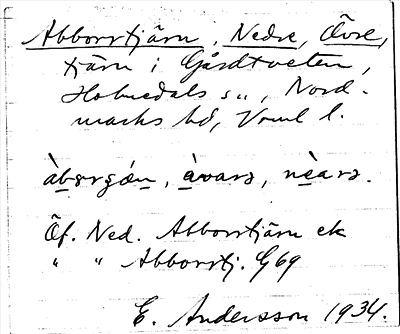 Abborrtjärn, Nedre, Övre,
tjärn i Gårdtveten,
Holmedals sn, Nord-
marks hd, Vrml l.
àbərʒǿn, ǿ̀vərə, nèərə.
Öf. Ned. Abborrtjärn ek
" " Abborrtj. G 69
E. Andersson 1934.